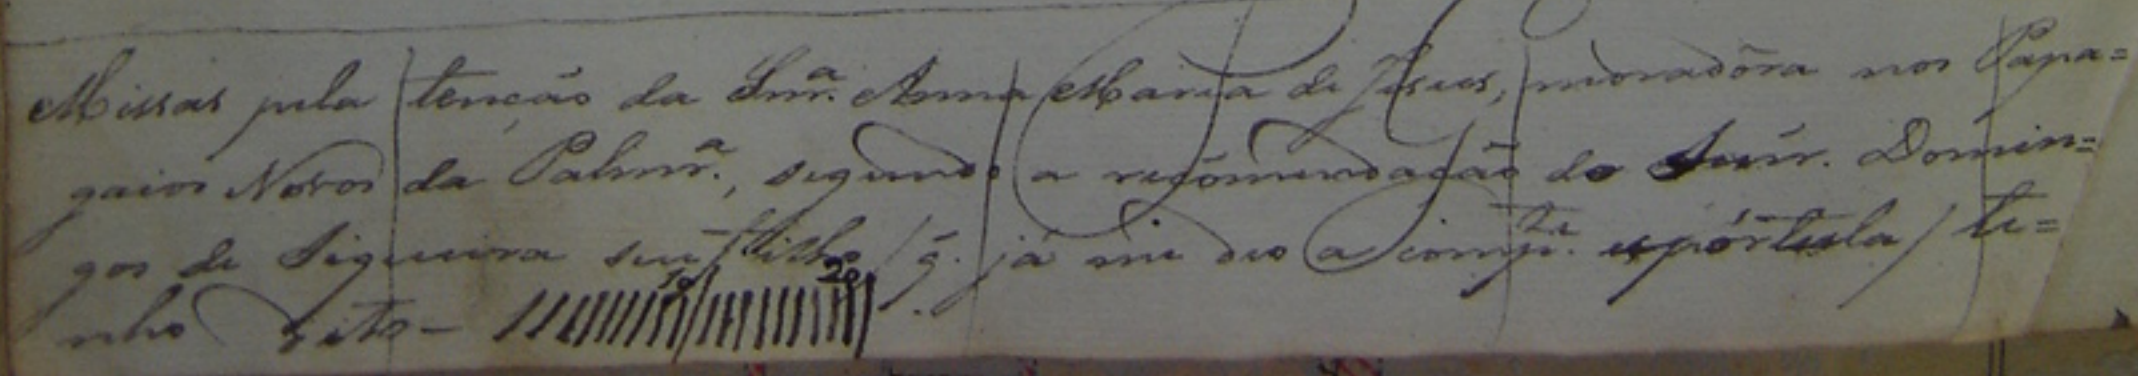 Missas pela tenção da Snrª. Anna Maria de Jesus, moradôra nos Papa=
gaios Novos da Palmrª., segundo a recómendação do Snr. Domin=
gos de Siqueira seu filho /q. já me deo a compte. espórtula/ te=
nho dito - 10 20